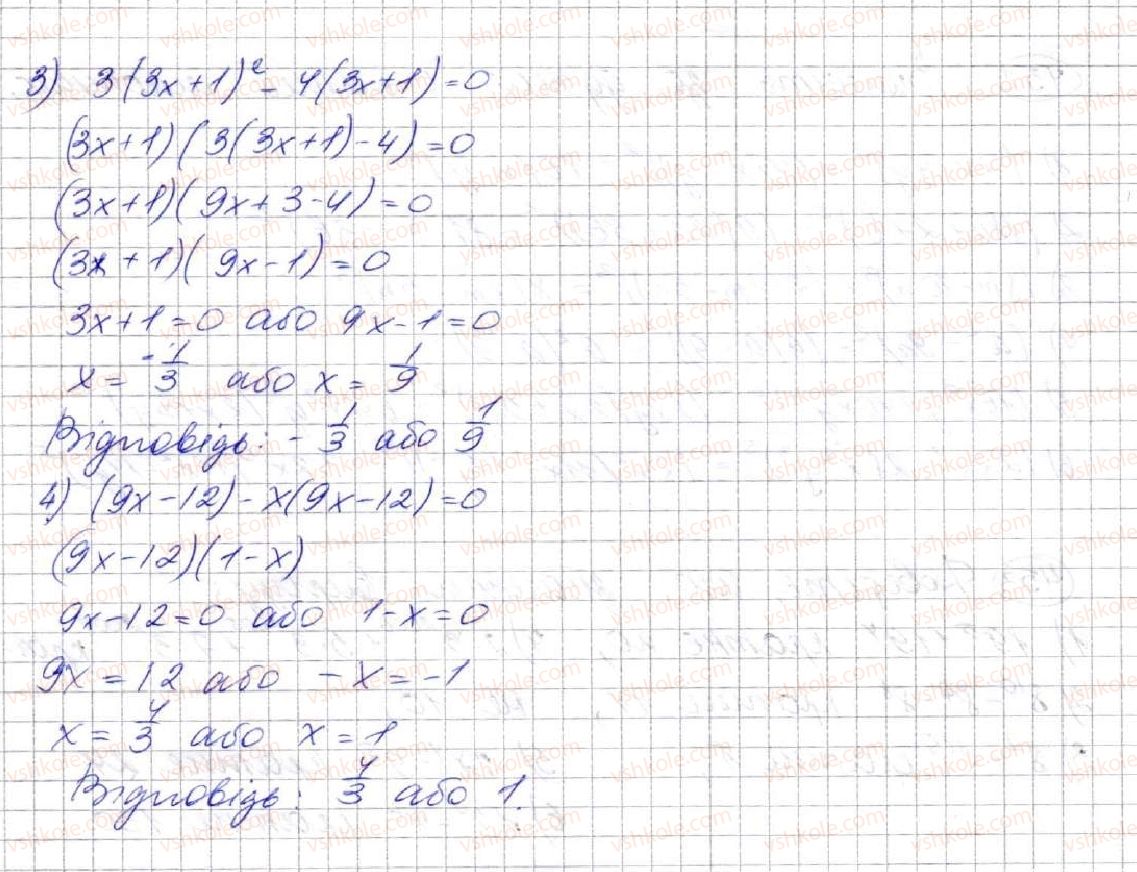 3) 3(3x+1)² - 4(3x+1)=0
(3x+1)(3(3x+1)-4)=0
(3x+1)(9x+3-4)=0
(3x+1)(9x-1)=0
3x+1=0 або 9x-1=0
x = -1/3 або x = 1/9
Відповідь: -1/3 або 1/9
4) (9x-12)-x(9x-12)=0
(9x-12)(1-x)
9x-12=0 або 1-x=0
9x = 12 або -x=-1
x = 4/3 або x = 1
Відповідь: 4/3 або 1.
vshkole.com